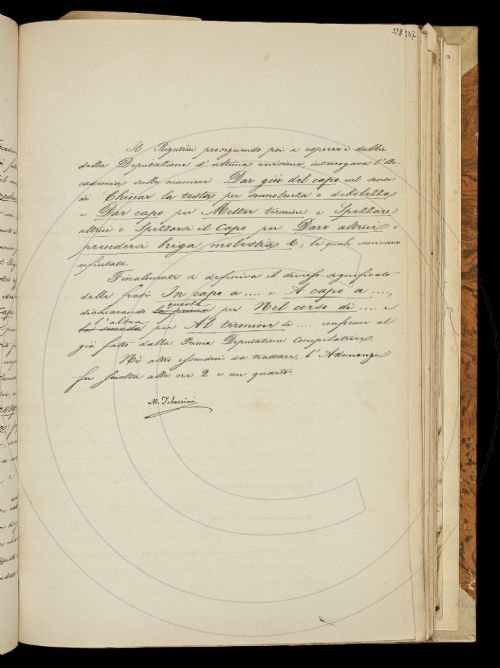 228 347
Il Rigutini proseguendo poi a esporre i dubbi
della Deputazione d'ultima revisione, interrogava l'Ac
cademia sulle maniere Dar giù del capo nel senso
di Chinar la testa per sonnolenza o debolezza
e Dar capo per Metter termine e Spezzare
altrui o Spezzarsi il Capo per Dare altrui o
prendersi briga molestia &, le quali venivano
rifiutate.
Finalmente si definiva il diverso significato
delle frasi In capo a .... e A capo a ....,
dichiarando la prima questa per Nel corso di .... e
la seconda l'altra per Al termine di .... conforme al
già fatto dalla Prima Deputazione compilatrice.
Nè altro essendovi da trattare, l'Adunanza
fu sciolta alle ore 2 e un quarto.
M. Tabarrini